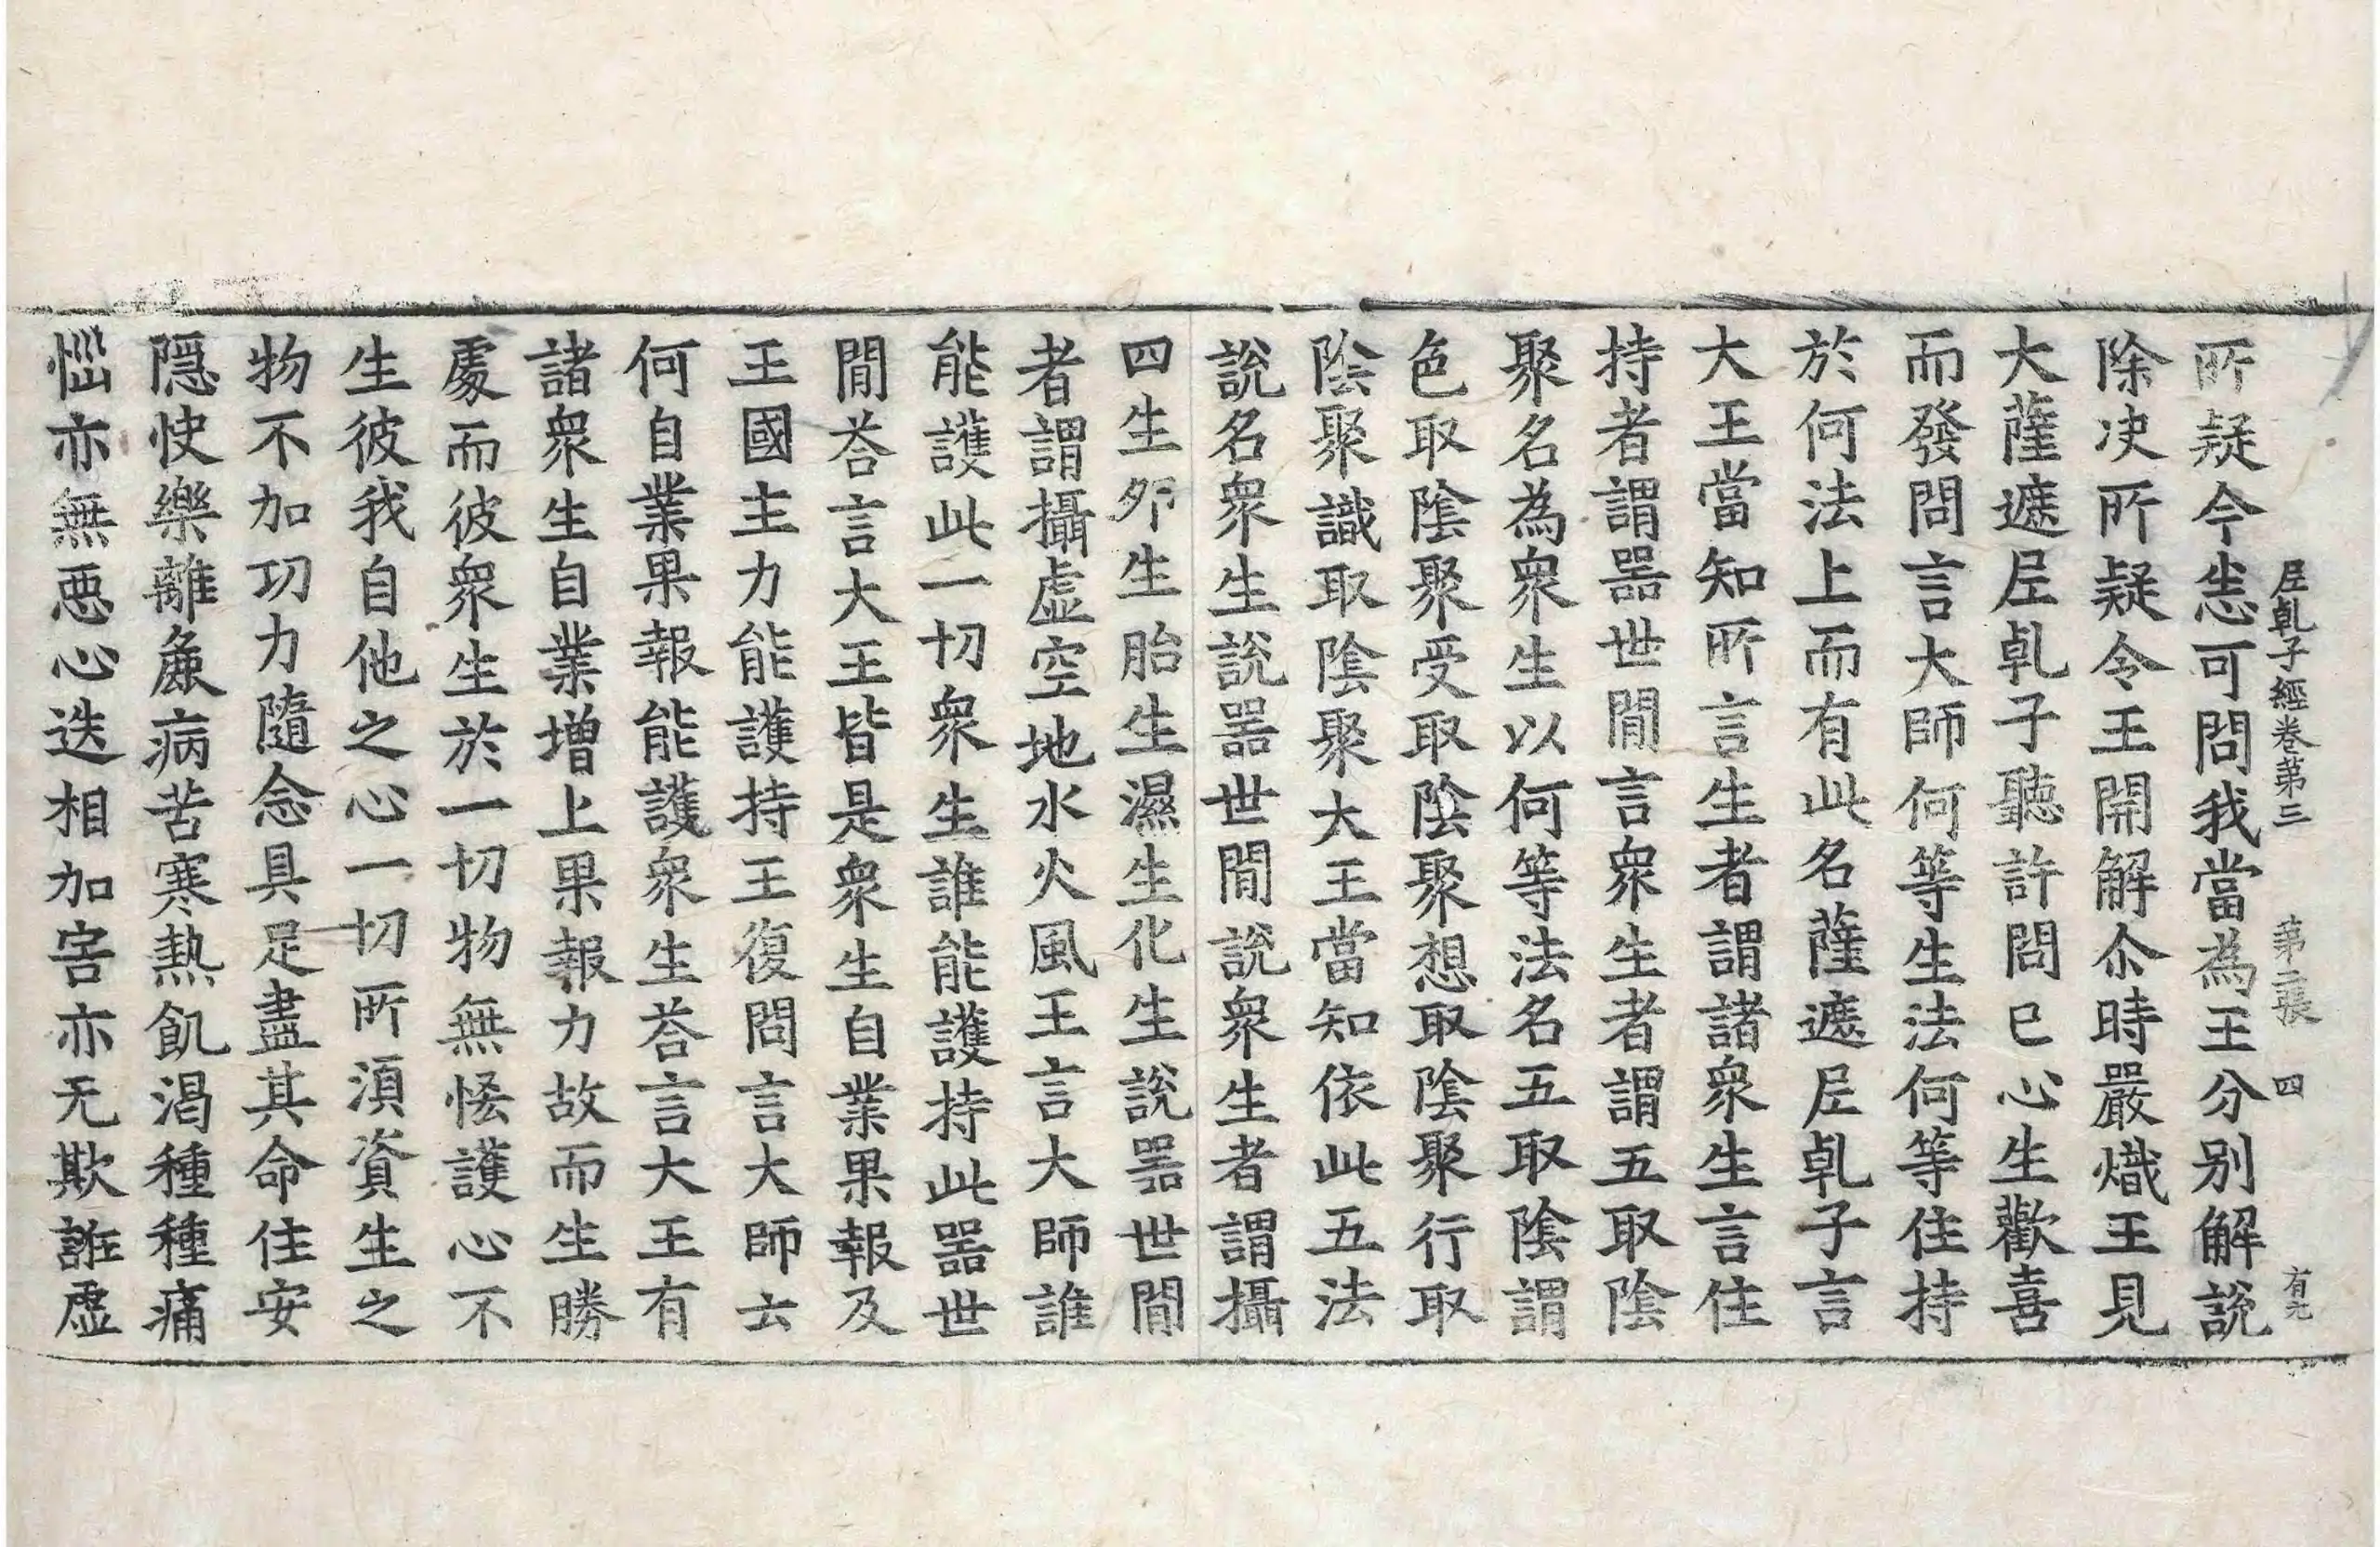 𡰱乹子經卷苐三 苐二張 四 有元
所疑今恙可問我當為王分别解說
除决所疑令王開解尒時嚴熾王見
大薩遮𡰱乹子聽許問已心生歡喜
而發問言大師何等生法何等住持
於何法上而有此名薩遮𡰱乹子言
大王當知所言生者謂諸衆生言住
持者謂噐世間言衆生者謂五取陰
聚名為衆生以何等法名五取陰謂
色取陰聚受取陰聚想取陰聚行取
陰聚識取陰聚大王當知依此五法
說名衆生說噐世間說衆生者謂攝
四生夘生胎生濕生化生說噐世間
者謂攝虛空地水火風王言大師誰
能護此一切衆生誰能護持此噐世
間荅言大王皆是衆生自業果報及
王國主力能護持王復問言大師云
何自業果報能護衆生荅言大王有
諸衆生自業增上果報力故而生勝
處而彼衆生於一切物無恡護心不
生彼我自他之心一切所須資生之
物不加功力隨念具足盡其命住安
隱快樂離麁病苦寒熱飢渴種種痛
惱亦無惡心迭相加害亦无欺誑虛